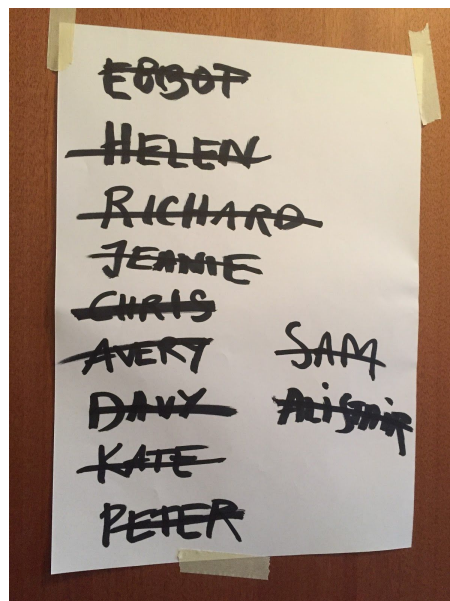 EBBOT
HELEN
RICHARD
JEANIE
CHRIS
AVERY
DAVY
KATE
PETER
SAM
ALISTAIR